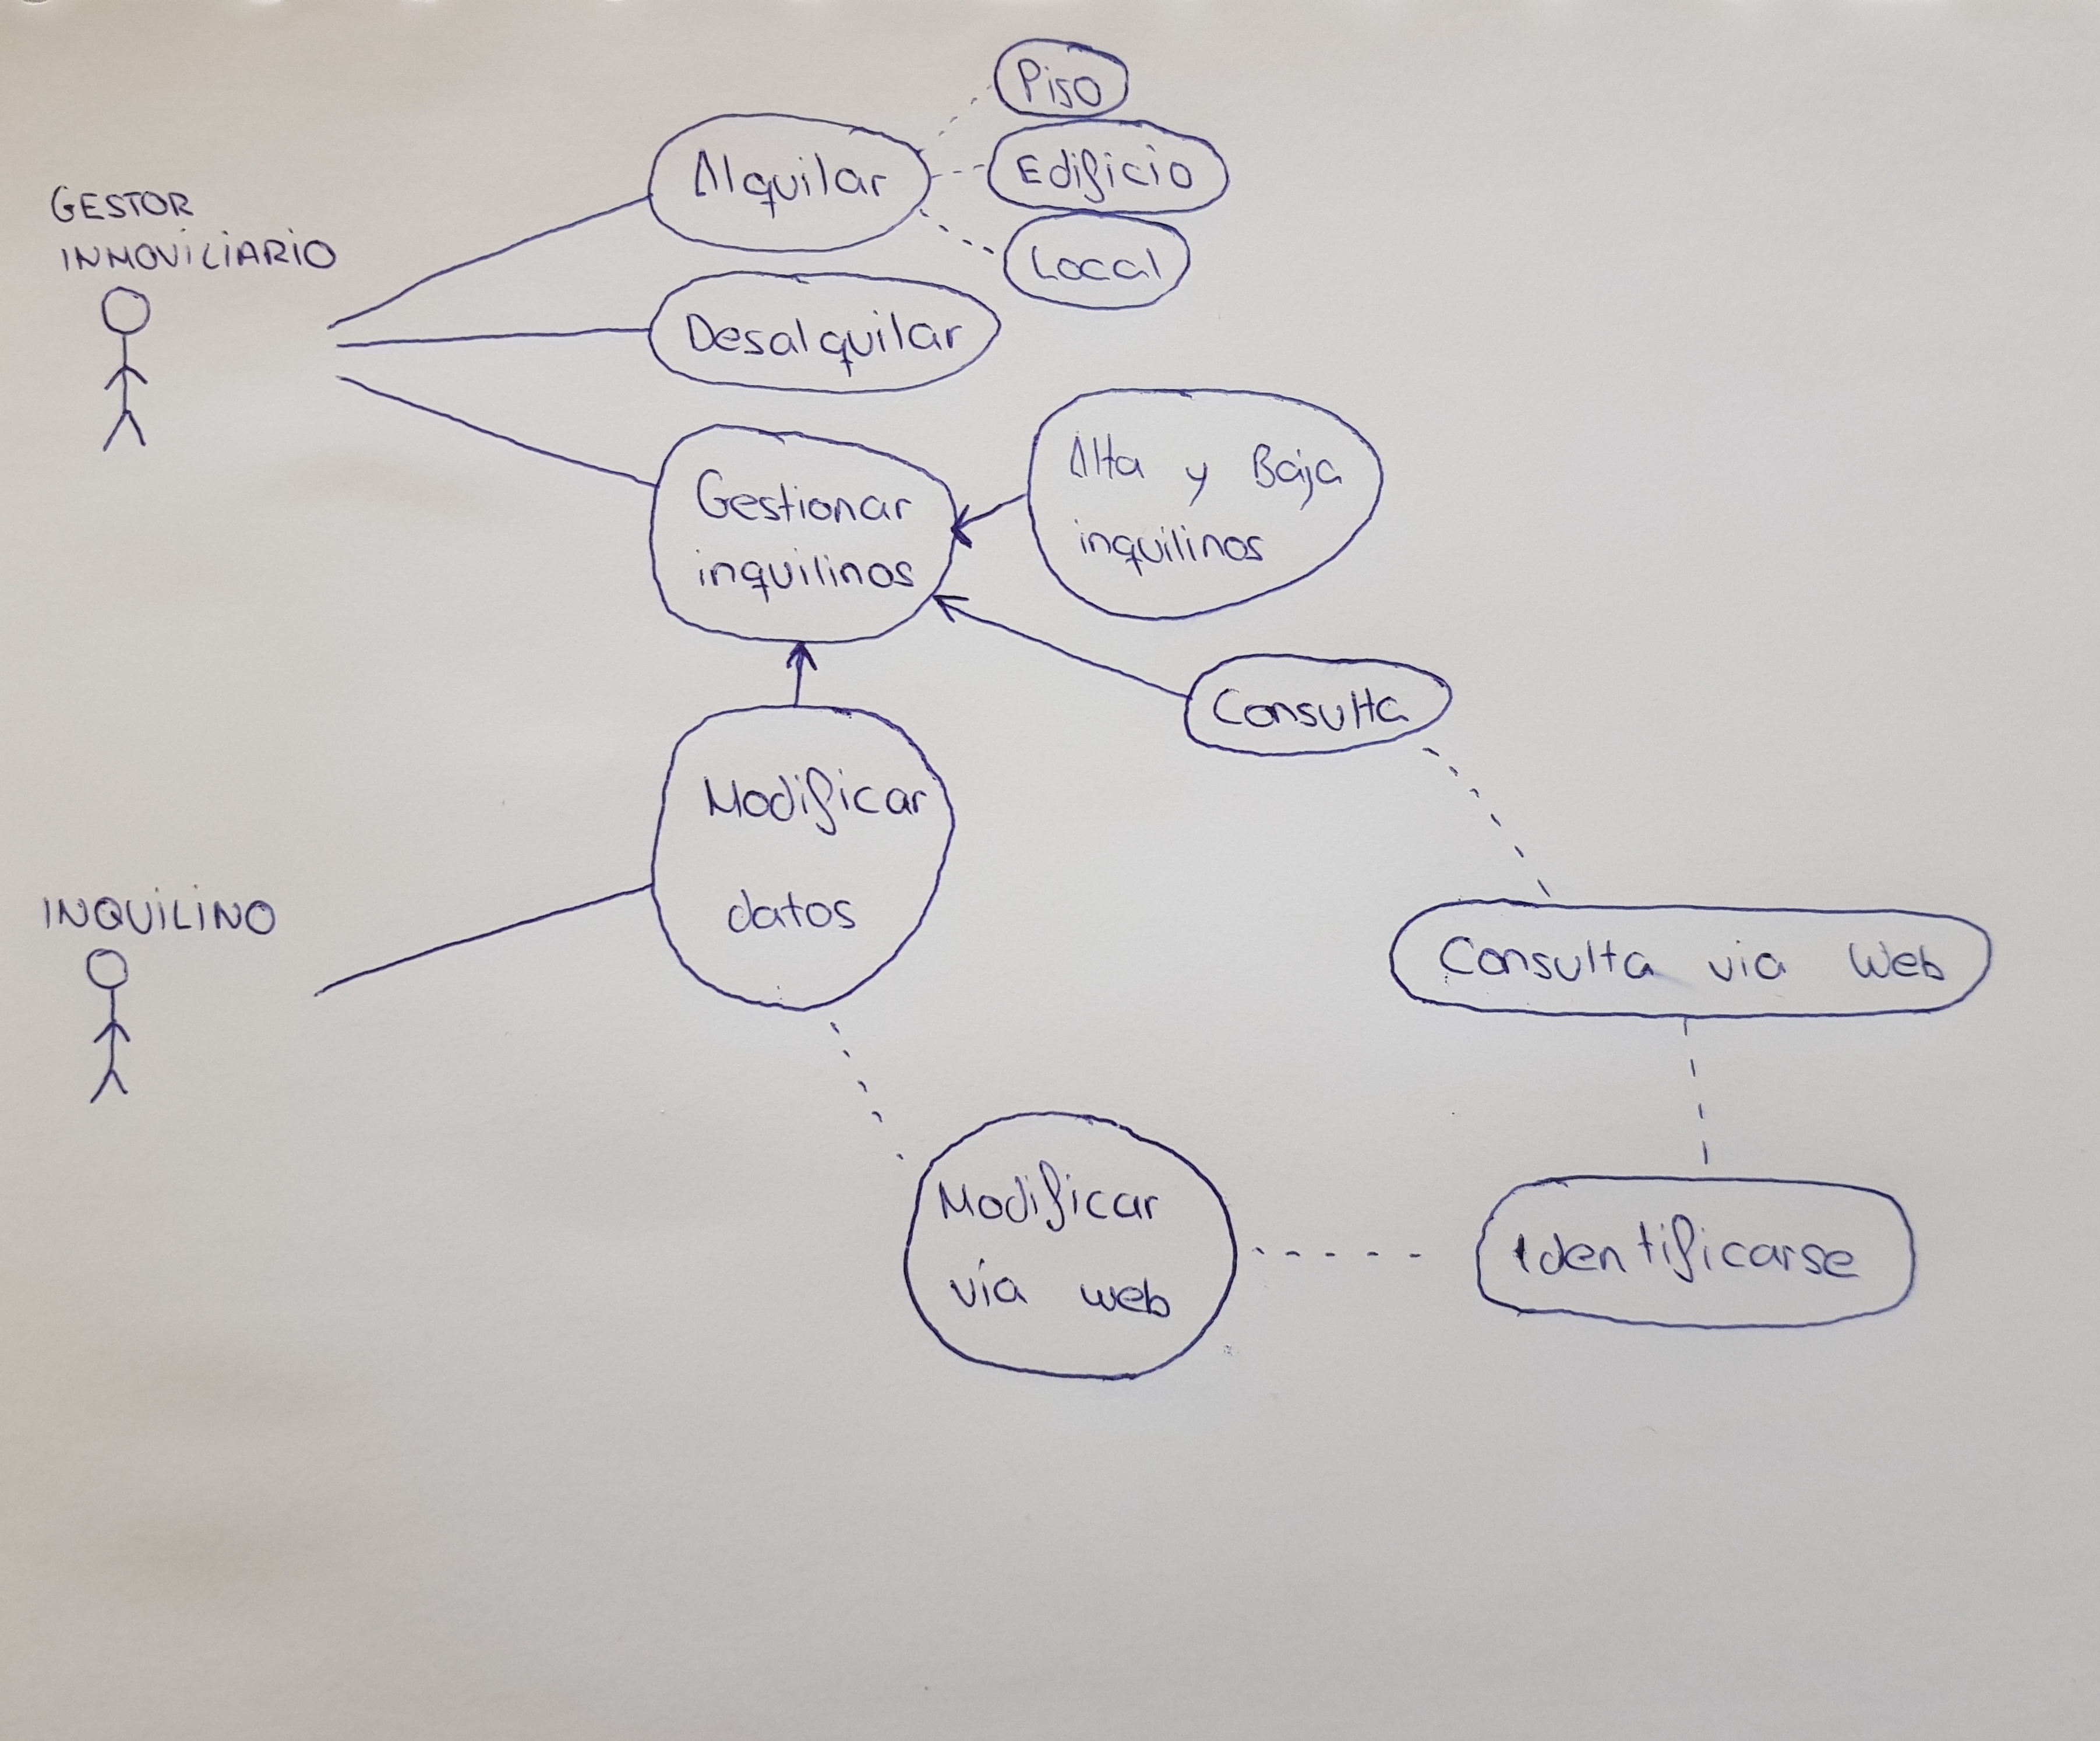 Piso
Alquilar
Edificio
GESTOR
INMOVILIARIO
Local
Desalquilar
Gestionar
inquilinos
Alta y Baja
inquilinos
Consulta
Modificar
datos
INQUILINO
Consulta via Web
Modificar
vía web
Identificarse